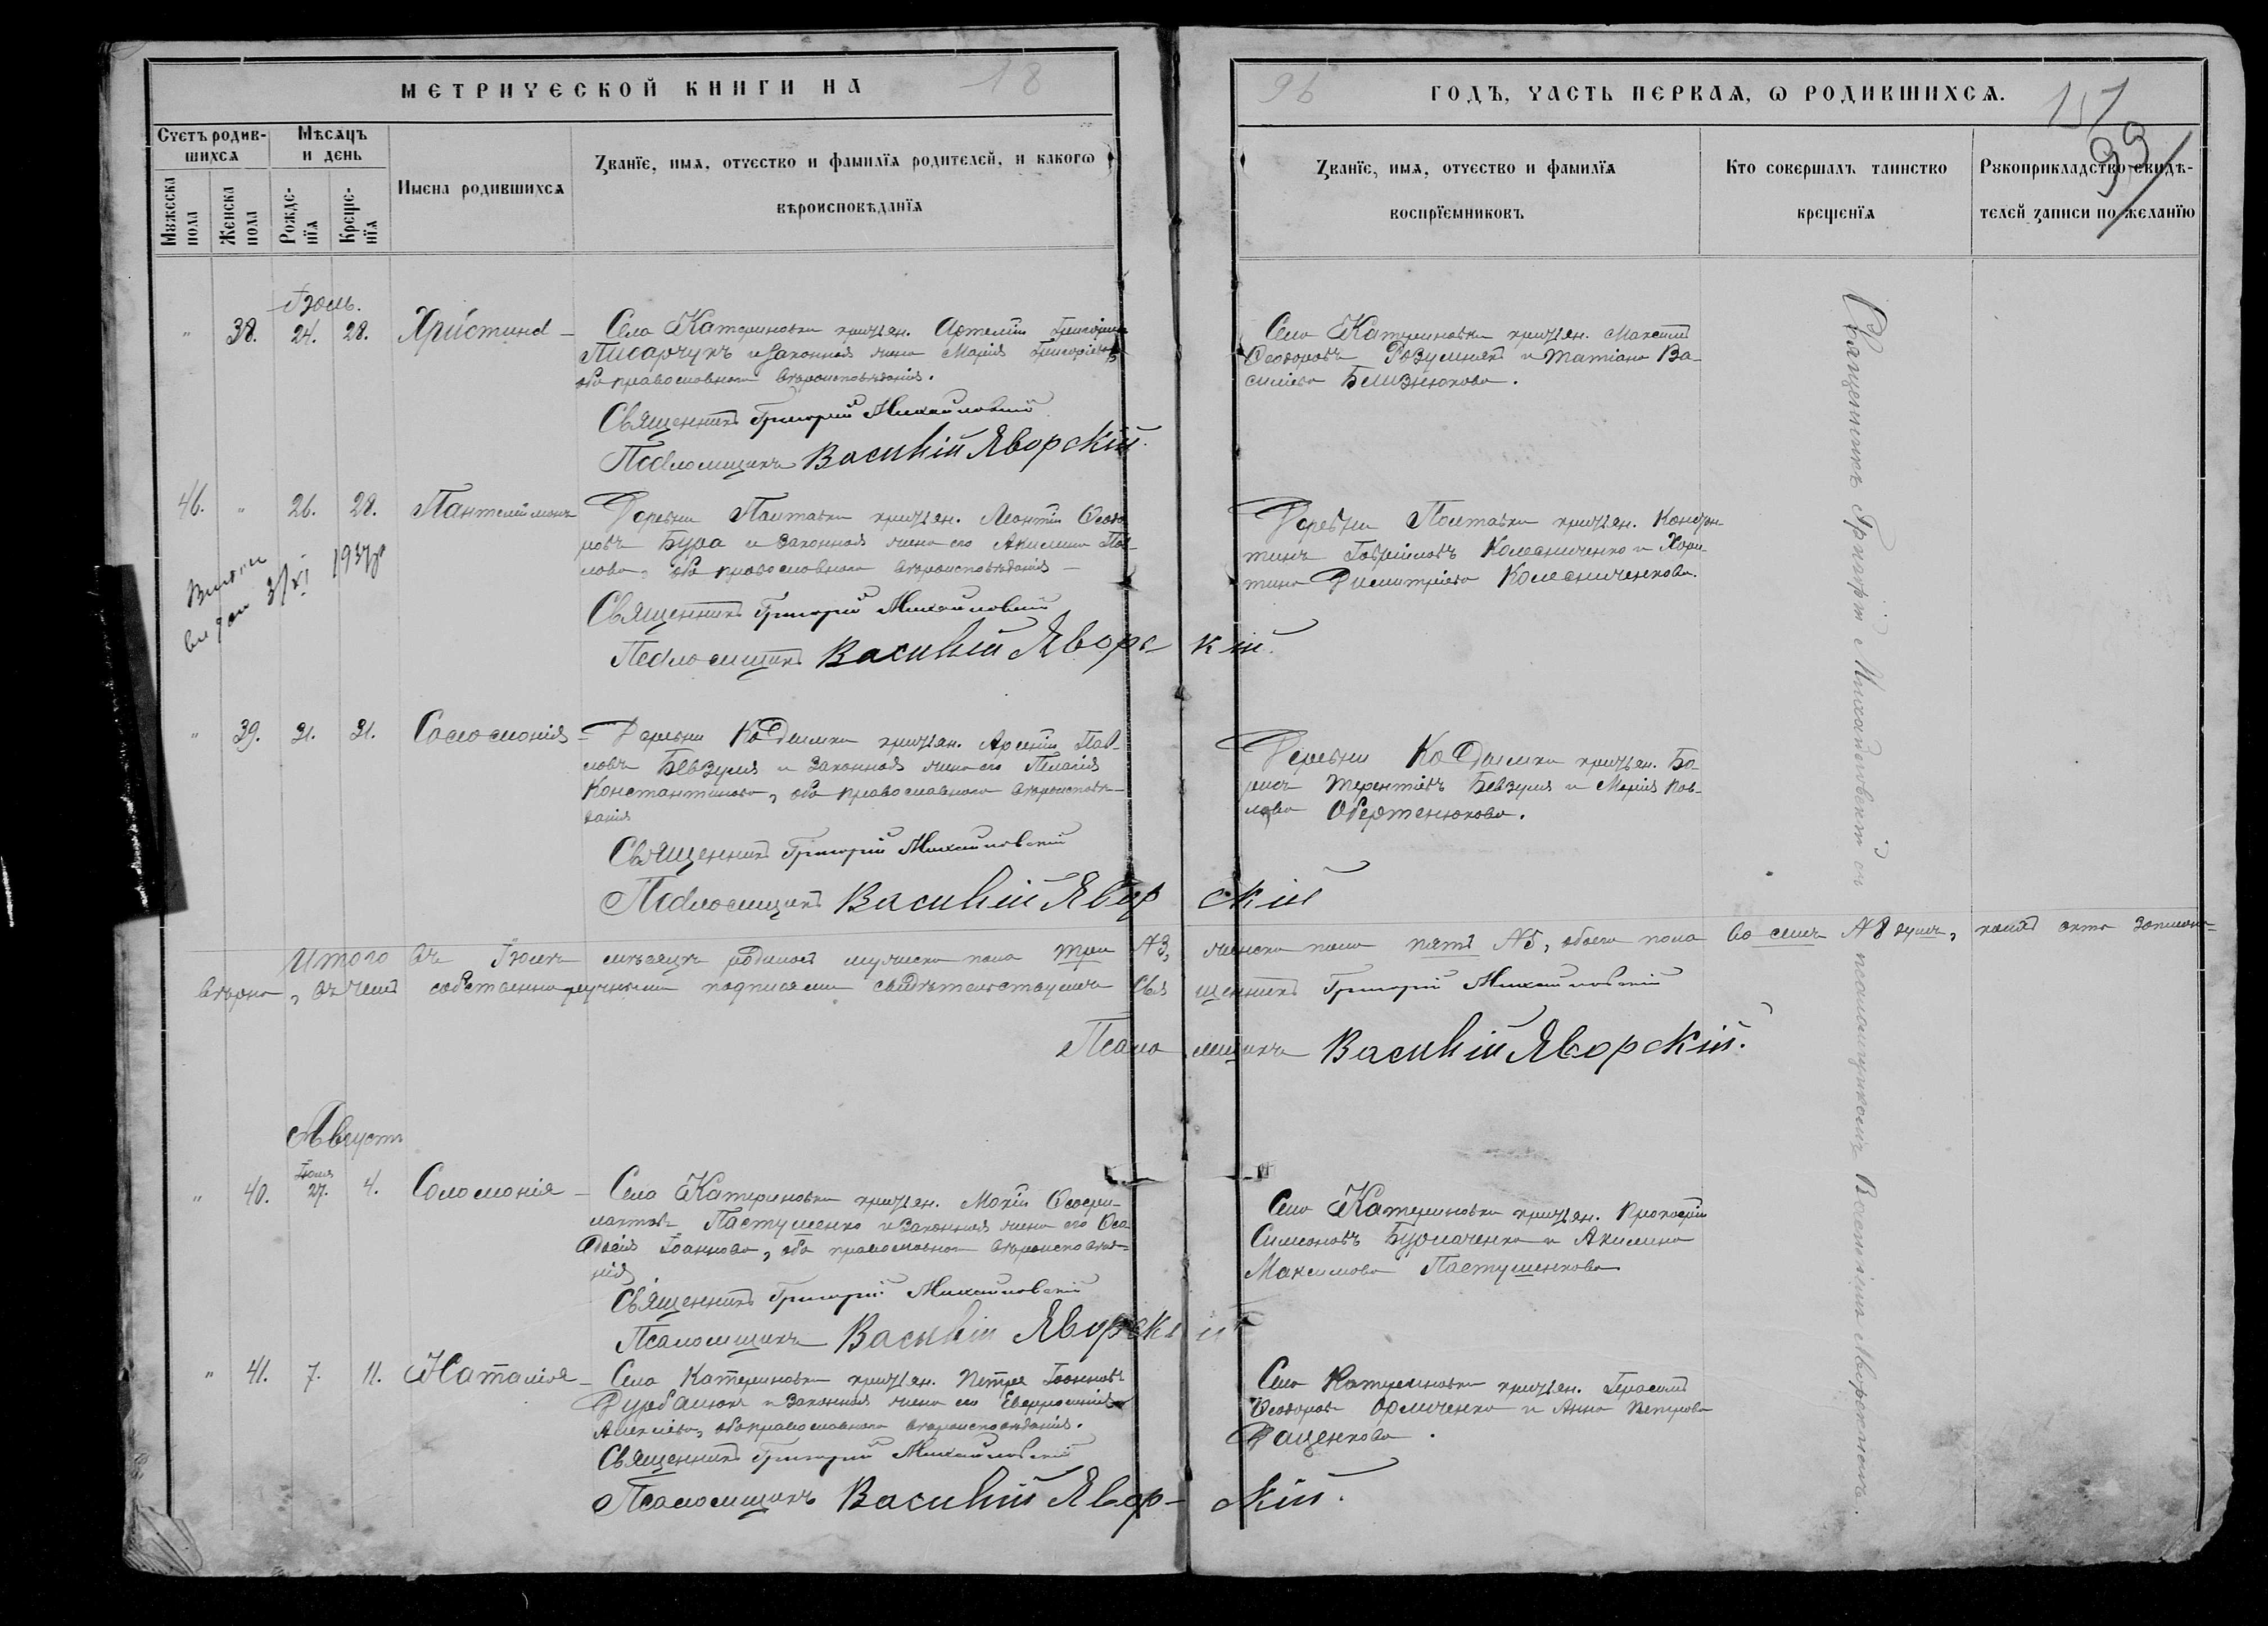 МЕТРИЧЕСКОЙ КНИГИ НА 18
96 ГОДЪ, ЧАСТЬ ПЕРВАѦ, Ѡ РОДИВШИХСѦ.
151
99
Счетъ родив-
шихсѧ
Мужеска
пола
Женска
пола
Мѣсѧцъ
и день
Рожде-
нїѧ
Креще-
нїѧ
Имена родившихсѧ
Званїе, имѧ, отчество и фамилїѧ родителей, и какогѡ
вѣроисповѣданїѧ
Званїе, имѧ, отчество и фамилїѧ
воспрїемниковъ
Кто совершалъ таинство
крещенїѧ
Рꙋкоприкладство свидѣ-
телей записи по желанїю
Іюль.
" 38. 24. 28. Христина
Села Катериновки крестьян. Артемій Григоріевъ
Писарчукъ и законная жена Марія Григоріева
оба православнаго вѣроисповѣданія.
Священникъ Григорій Михайловскій
Псаломщикъ Василій Яворскій.
Села Катериновки крестьян. Максимъ
Ѳеодоровъ Розумнякъ и Татіана Ва-
силіева Близнюкова.
46. " 26. 28. Пантелеймонъ
Деревни Полтавки крестьян. Леонтій Ѳеодо
ровъ Бура и законная жена его Акилина Пав-
лова, оба православнаго вѣроисповѣданія
Священникъ Григорій Михайловскій
Псаломщикъ Василій Яворскій.
Деревни Полтавки крестьян. Кондра
тинъ Гавріиловъ Колесниченко и Хари-
тина Димитріева Колесниченкова.
выдан 3/XI 1937р
" 39. 31. 31. Соломонія
Деревни Кодымки крестьян. Арсеній Пав-
ловъ Бевзумя и законная жена его Пелагія
Константинова, оба православнаго вѣроисповѣ-
данія
Священникъ Григорій Михайловскій
Псаломщикъ Василій Яворскій
Деревни Кодымки крестьян. Бо-
рисъ Терентіевъ Бевзумя и Марія Пав-
лова Обертенюкова.
Итого въ Іюлѣ мѣсяцѣ родилось мужеска пола три №3, женска пола пять №5, обоего пола восемь №8 душъ, какъ актъ записанъ
вѣрно, въ чемъ собственноручными подписями свидѣтельствуемъ Священникъ Григорій Михайловскій
Псаломщикъ Василій Яворскій.
Августъ
Іюля
" 40. 27. 4. Соломонія
Села Катериновки крестьян. Мокій Ѳеофи-
лактовъ Пастушенко и законная жена его Ѳео
досія Іоаннова, оба православнаго вѣроисповѣда-
нія
Священникъ Григорій Михайловскій
Псаломщикъ Василій Яворскій
Села Катериновки крестьян. Прокофій
Симеоновъ Бурлаченко и Акилина
Максимова Пастушенкова
" 41. 7. 11. Наталія
Села Катериновки крестьян. Петръ Іоанновъ
Дурбалюкъ и законная жена его Евфросинія
Алексіева, оба православнаго вѣроисповѣданія.
Священникъ Григорій Михайловскій
Псаломщикъ Василій Яворскій.
Села Катериновки крестьян. Герасимъ
Ѳеодоровъ Орличенко и Анна Петрова
Даценкова.
Священникъ Григорій Михайловскій съ псаломщикомъ Василіемъ Яворскимъ.